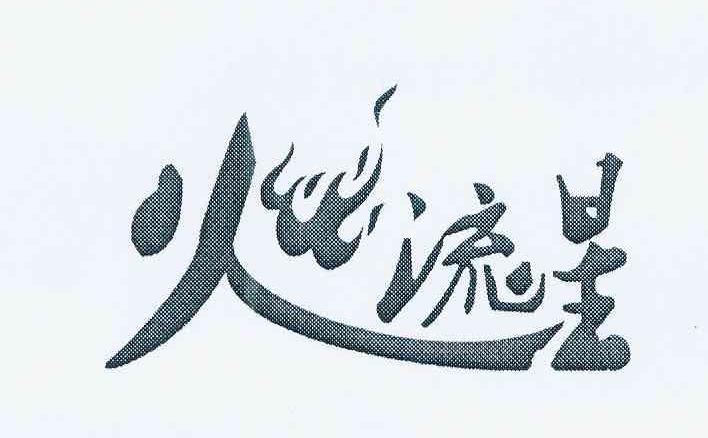 火流星